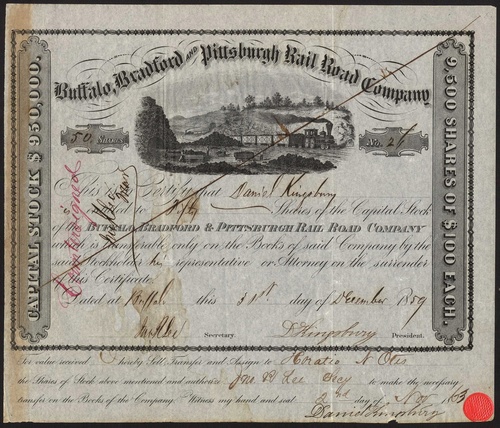 Buffalo, Bradford and Pittsburgh Rail Road Company
CAPITAL STOCK $950,000.
9,500 SHARES OF $100 EACH.
50 SHARES
No. 27
This is to Certify that Daniel Kingsbury
is entitled to Fifty Shares of the Capital Stock
of the BUFFALO, BRADFORD & PITTSBURGH RAIL ROAD COMPANY
which is transferable only on the Books of said Company by the
said Stockholder his representative or Attorney on the surrender
of this Certificate.
Dated at Buffalo this 31st day of December 1859
Secretary. D Kingsbury President.
For value received I hereby Sell Transfer and Assign to Horatio N Otis
the Shares of Stock above mentioned and authorize Secy to make the necessary
transfer on the Books of the Company. Witness my hand and seal day of 1863
Daniel Kingsbury